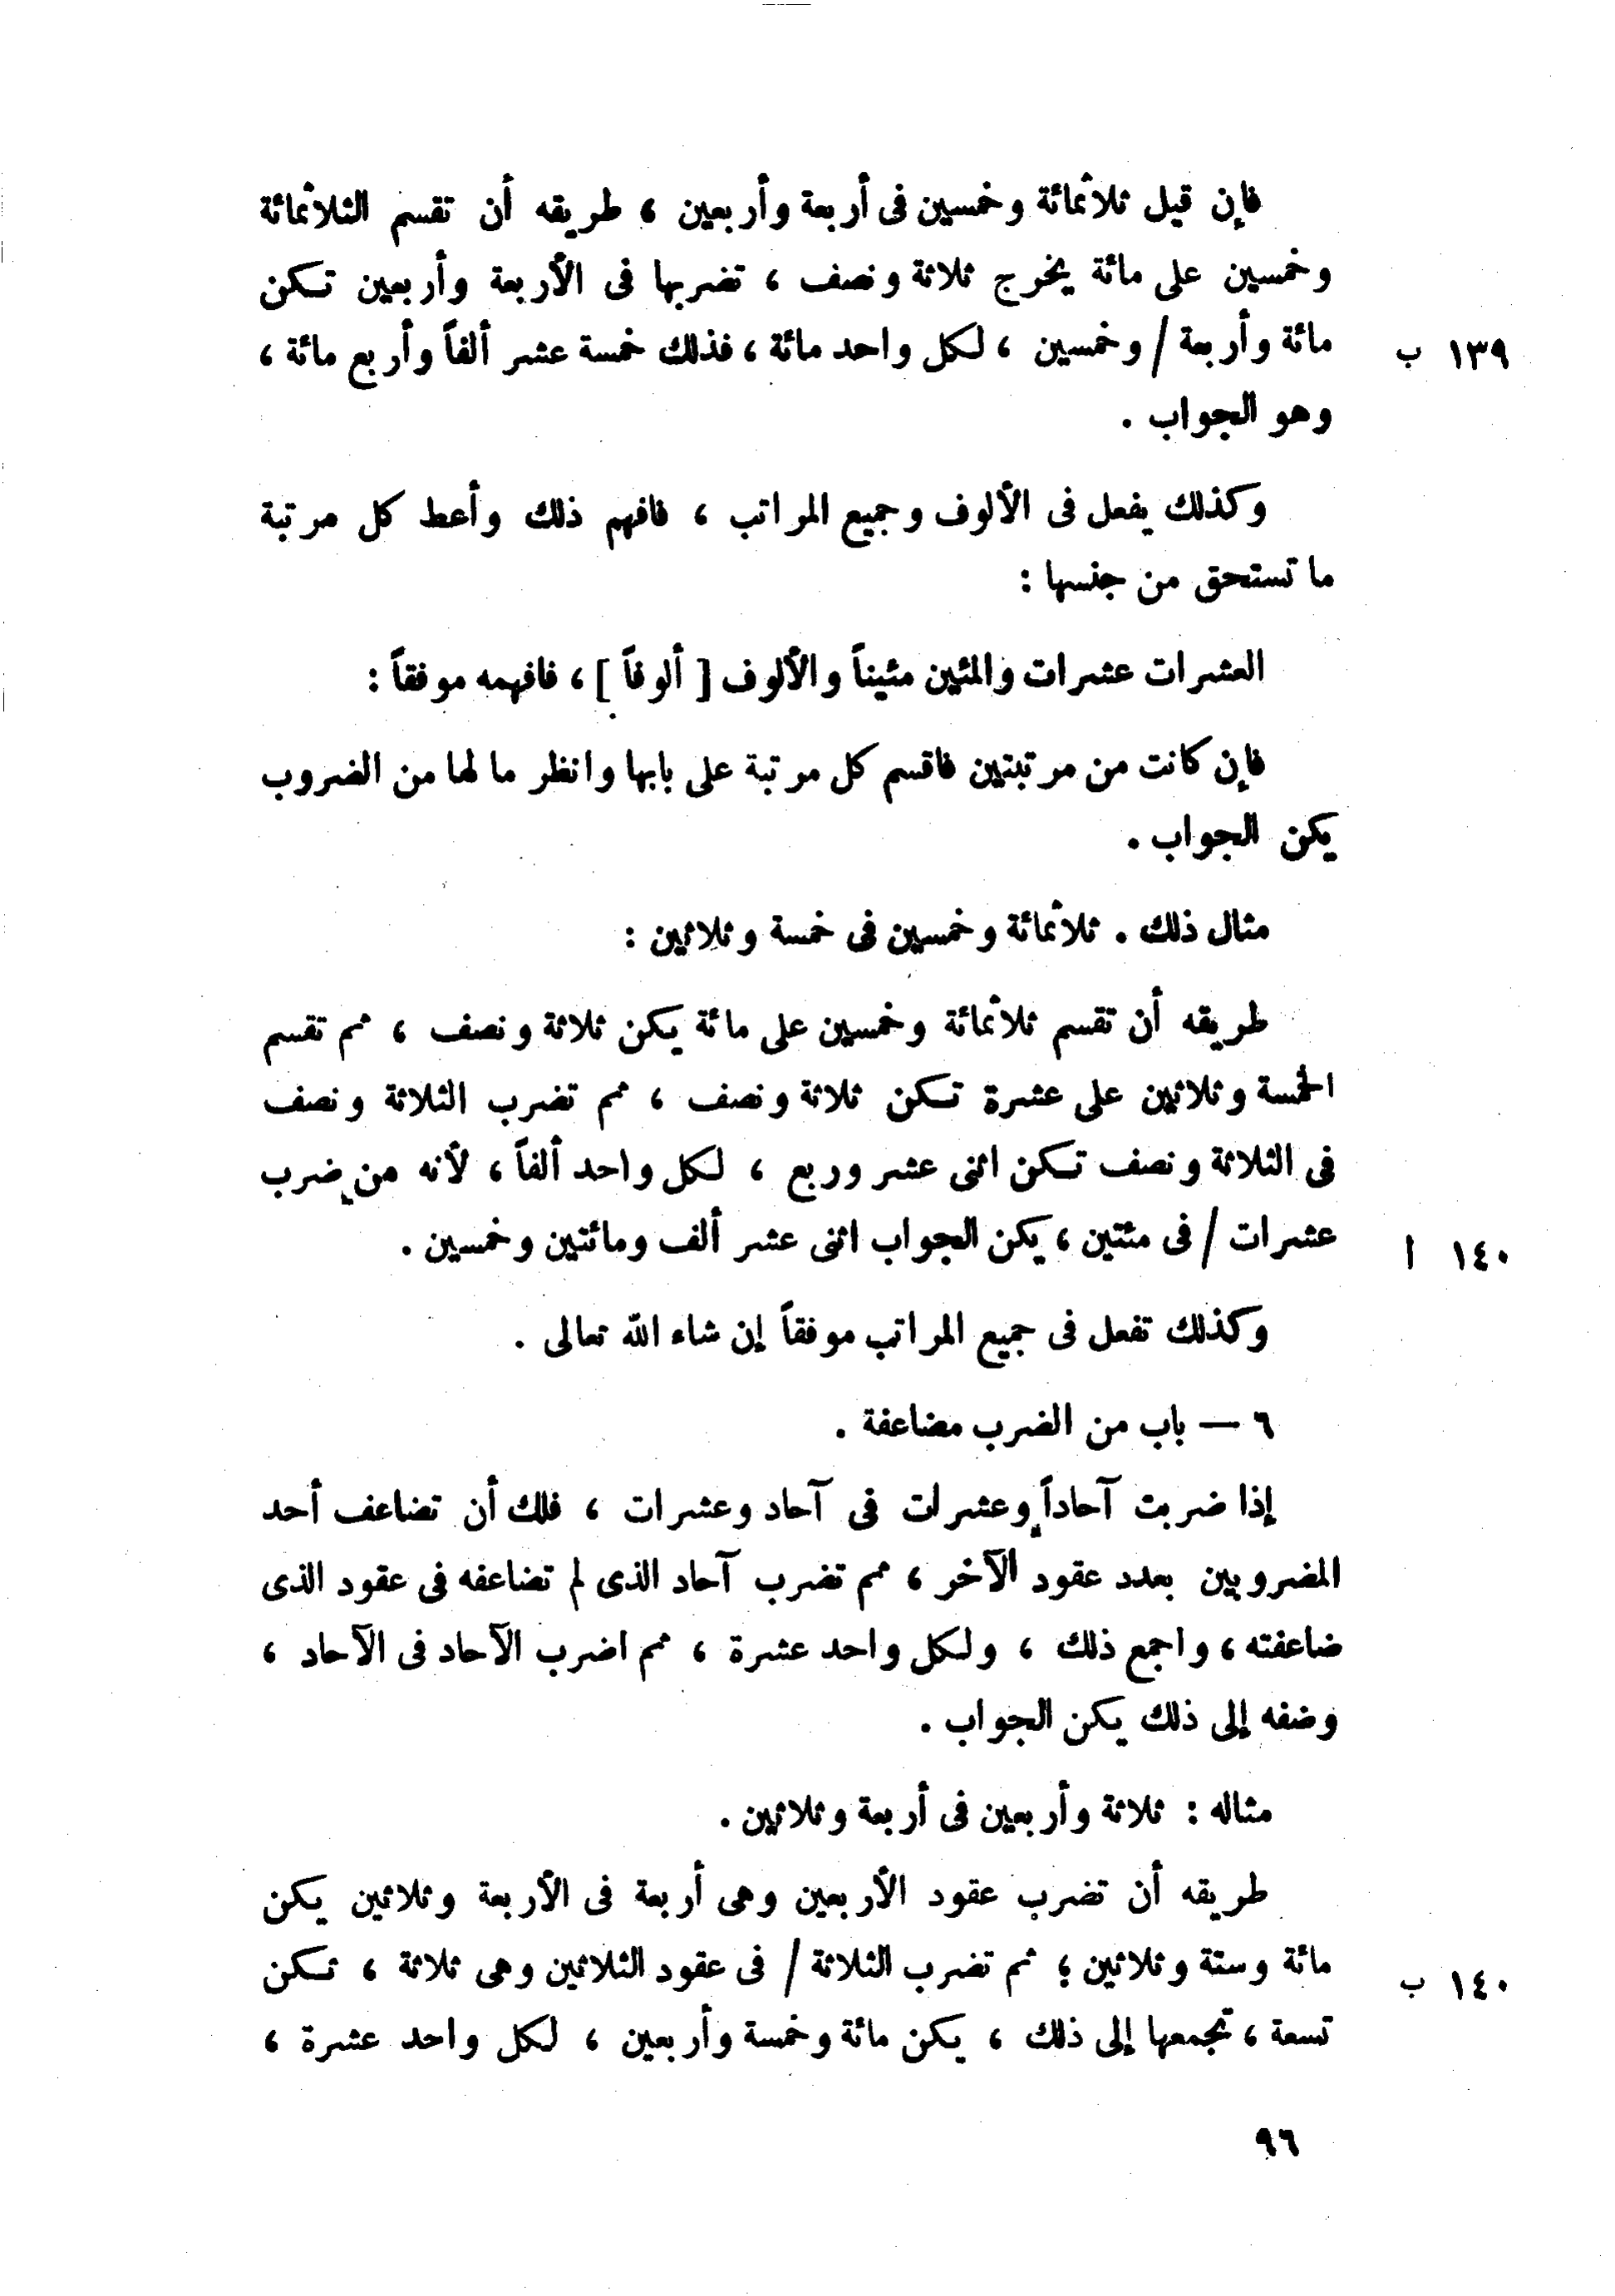 فإن قيل ثلاثمائة وخمسين فى أربعة وأربعين ، طريقه أن تقسم الثلاثمائة
وخمسين على مائة يخرج ثلاثة ونصف ، تضربها فى الأربعة وأربعين تكن
مائة وأربعة / وخمسين ، لكل واحد مائة ، فذلك خمسة عشر ألفاً وأربع مائة ،
١٣٩ ب
وهو الجواب .
وكذلك يفعل فى الألوف وجميع المراتب ، فافهم ذلك وأعط كل مرتبة
ما تستحق من جنسها :
العشرات عشرات والمئين مئيناً والألوف [ ألوفاً ] ، فافهمه موفقاً :
فإن كانت من مرتبتين فاقسم كل مرتبة على بابها وانظر ما لها من الضروب
يكن الجواب .
مثال ذلك . ثلاثمائة وخمسين فى خمسة وثلاثين :
طريقه أن تقسم ثلاثمائة وخمسين على مائة يكن ثلاثة ونصف ، ثم تقسم
الخمسة وثلاثين على عشرة تكن ثلاثة ونصف ، ثم تضرب الثلاثة ونصف
فى الثلاثة ونصف تكن اثنى عشر وربع ، لكل واحد ألفاً ، لأنه من ضرب
عشرات / فى مئتين ، يكن الجواب اثنى عشر ألف ومائتين وخمسين .
١٤٠ ا
وكذلك تفعل فى جميع المراتب موفقاً إن شاء الله تعالى .
٦ — باب من الضرب مضاعفة .
إذا ضربت آحاداً وعشرات فى آحاد وعشرات ، فلك أن تضاعف أحد
المضروبين بعدد عقود الآخر ، ثم تضرب آحاد الذى لم تضاعفه فى عقود الذى
ضاعفته ، واجمع ذلك ، ولكل واحد عشرة ، ثم اضرب الآحاد فى الآحاد ،
وضفه إلى ذلك يكن الجواب .
مثاله : ثلاثة وأربعين فى أربعة وثلاثين .
طريقه أن تضرب عقود الأربعين وهى أربعة فى الأربعة وثلاثين يكن
مائة وستة وثلاثين ؛ ثم تضرب الثلاثة / فى عقود الثلاثين وهى ثلاثة ، تكن
١٤٠ ب
تسعة ، تجمعها إلى ذلك ، يكن مائة وخمسة وأربعين ، لكل واحد عشرة ،
٩٦